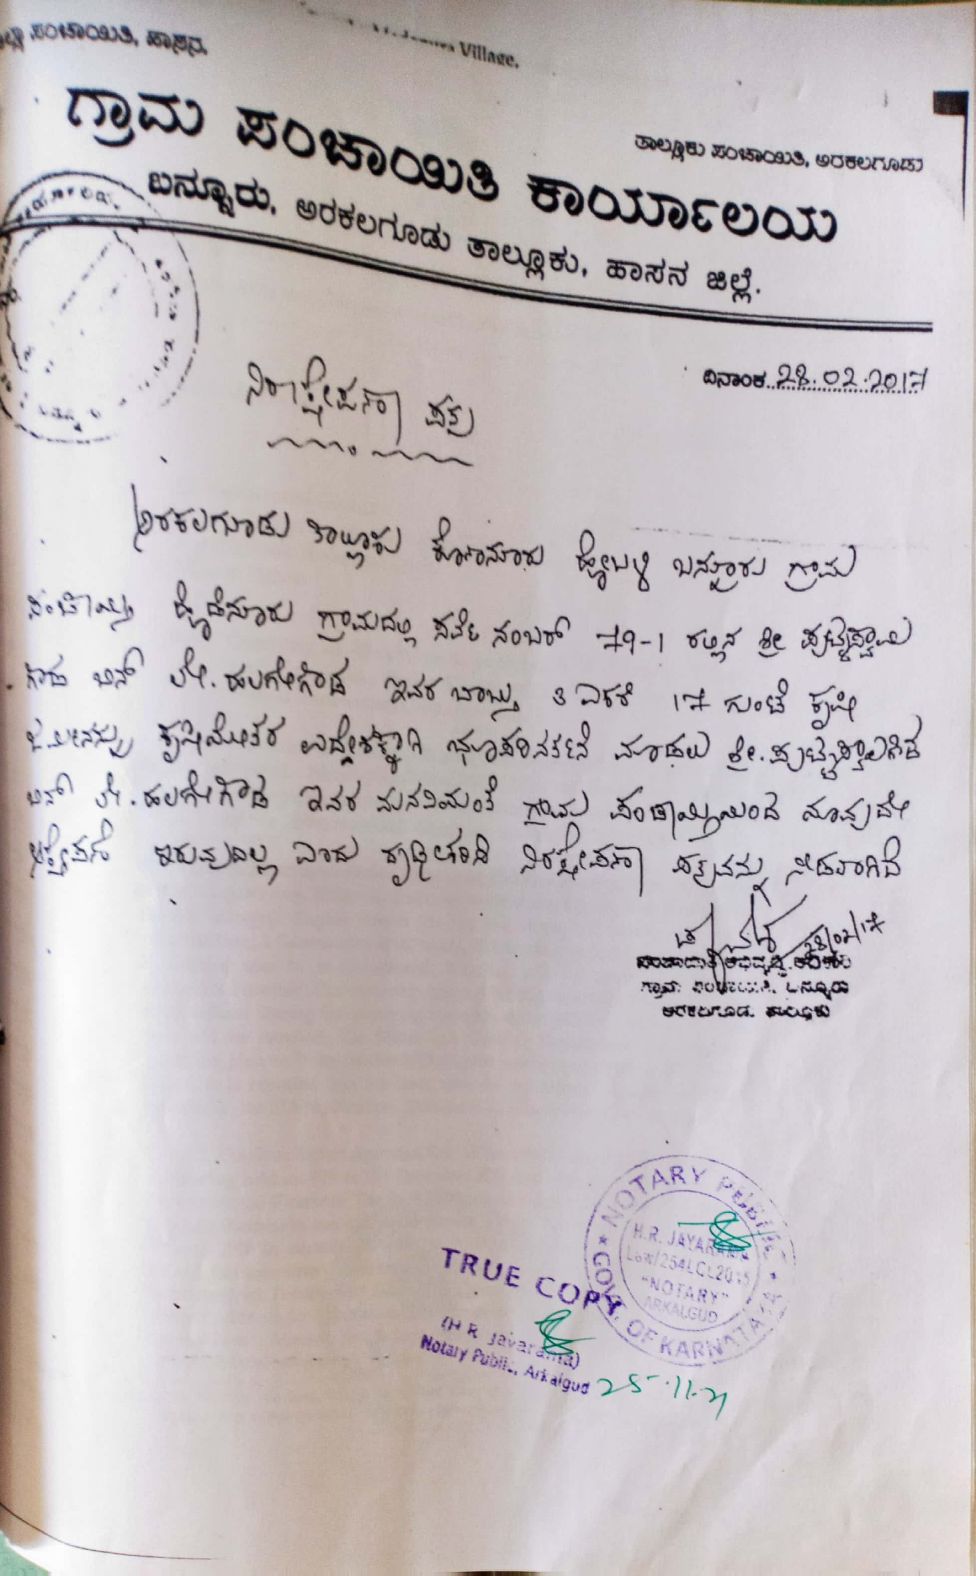 ಪಂಚಾಯಿತಿ, ಹಾಸನ.
Village.
ತಾಲ್ಲೂಕು ಪಂಚಾಯಿತಿ, ಅರಕಲಗೂಡು
ಗ್ರಾಮ ಪಂಚಾಯಿತಿ ಕಾರ್ಯಾಲಯ
ಬನ್ನೂರು, ಅರಕಲಗೂಡು ತಾಲ್ಲೂಕು, ಹಾಸನ ಜಿಲ್ಲೆ.
ದಿನಾಂಕ 28.02.2017
ನಿರಾಕ್ಷೇಪಣಾ ಪತ್ರ
ಅರಕಲಗೂಡು ತಾಲ್ಲೂಕು ಕೊಣನೂರು ಹೋಬಳಿ ಬನ್ನೂರು ಗ್ರಾಮ
ಪಂಚಾಯ್ತಿ ಗ್ರಾಮದಲ್ಲಿ ಸರ್ವೆ ನಂಬರ್ 79-1 ರಲ್ಲಿನ ಶ್ರೀ ಪುಟ್ಟಸ್ವಾಮಿ
ಗೌಡ ಬಿನ್ ಲೇ. ಹಲಗೇಗೌಡ ಇವರ ಬಾಬ್ತು 3 ಎಕರೆ 17 ಗುಂಟೆ ಕೃಷಿ
ಜಮೀನನ್ನು ಕೃಷಿಯೇತರ ಉದ್ದೇಶಕ್ಕಾಗಿ ಭೂಪರಿವರ್ತನೆ ಮಾಡಲು ಶ್ರೀ. ಪುಟ್ಟಸ್ವಾಮಿಗೌಡ
ಬಿನ್ ಲೇ. ಹಲಗೇಗೌಡ ಇವರ ಮನವಿಯಂತೆ ಗ್ರಾಮ ಪಂಚಾಯ್ತಿಯಿಂದ ಯಾವುದೇ
ಆಕ್ಷೇಪಣೆ ಇರುವುದಿಲ್ಲ ಎಂದು ನಿರಾಕ್ಷೇಪಣಾ ಪತ್ರವನ್ನು ನೀಡಲಾಗಿದೆ
28/02/17
ಪಂಚಾಯಿತಿ ಅಭಿವೃದ್ಧಿ ಅಧಿಕಾರಿ
ಗ್ರಾಮ ಪಂಚಾಯಿತಿ, ಬನ್ನೂರು
ಅರಕಲಗೂಡು ತಾಲ್ಲೂಕು
NOTARY PUBLIC
H.R. JAYARAMA
Law/254LCL2015
"NOTARY"
ARKALGUD
GOVT. OF KARNATAKA
TRUE COPY
(H R Jayarama)
Notary Public, Arkalgud 25.11.21